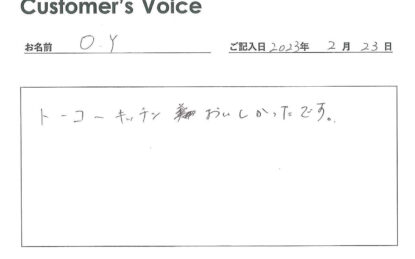 Customer's Voice
お名前 O.Y ご記入日 2023年 2月 23日
トーコーキッチン おいしかったです。